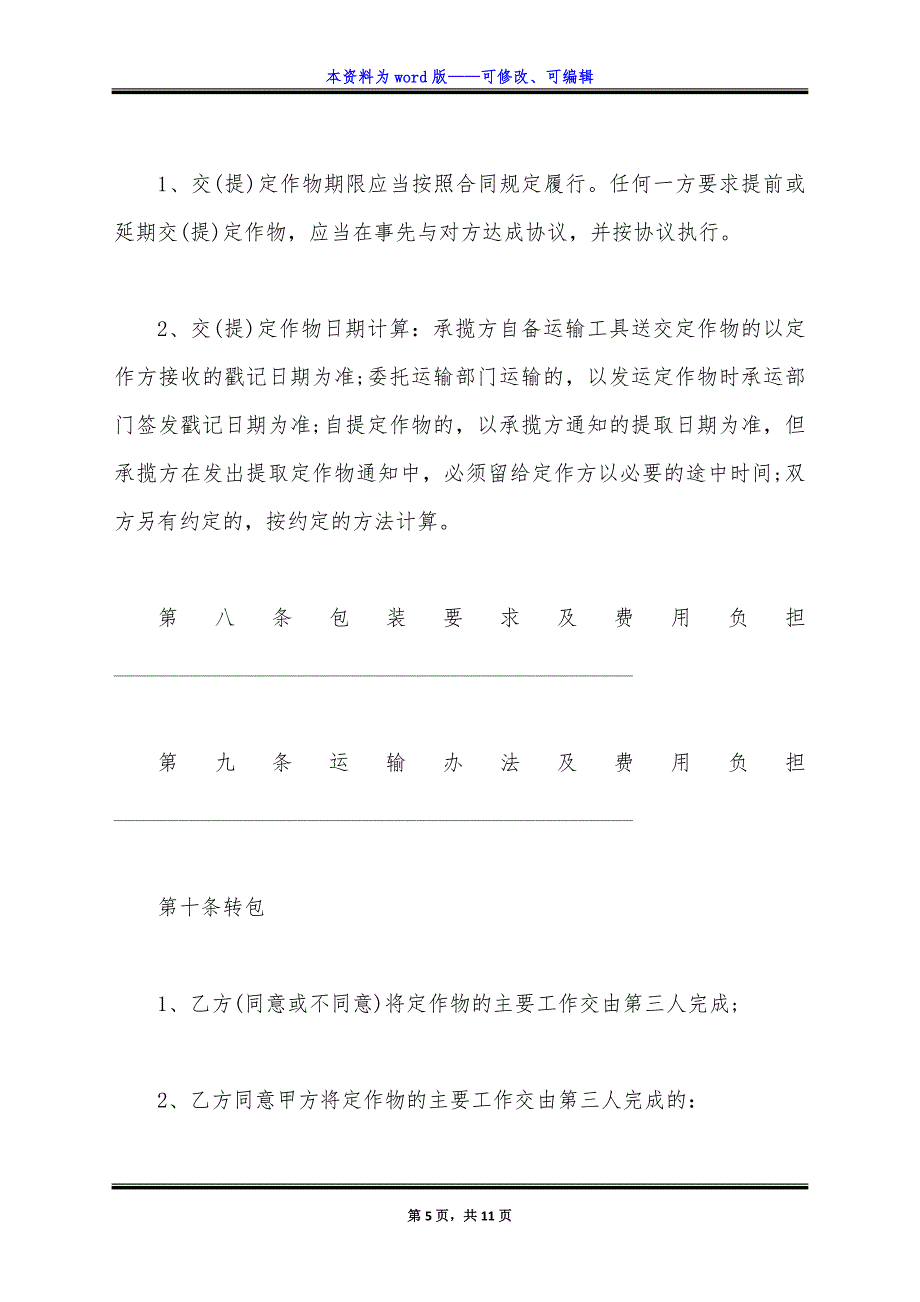 本资料为 word 版——可修改、可编辑
1、交(提)定作物期限应当按照合同规定履行。任何一方要求提前或
延期交(提)定作物，应当在事先与对方达成协议，并按协议执行。
2、交(提)定作物日期计算：承揽方自备运输工具送交定作物的以定
作方接收的戳记日期为准;委托运输部门运输的，以发运定作物时承运部
门签发戳记日期为准;自提定作物的，以承揽方通知的提取日期为准，但
承揽方在发出提取定作物通知中，必须留给定作方以必要的途中时间;双
方另有约定的，按约定的方法计算。
第八条包装要求及费用负担
_______________________________________________
第九条运输办法及费用负担
_______________________________________________
第十条转包
1、乙方(同意或不同意)将定作物的主要工作交由第三人完成;
2、乙方同意甲方将定作物的主要工作交由第三人完成的：
第 5 页，共 11 页